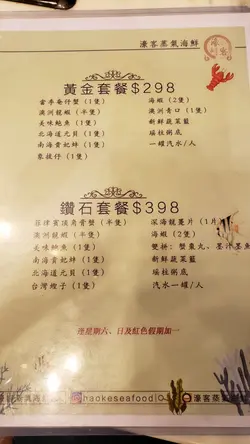 濠客蒸氣海鮮
黃金套餐$298
當季奄仔蟹（1隻）
澳洲龍蝦（半隻）
美味鮑魚（1隻）
北海道元貝（1隻）
南海貴妃蚌（1隻）
象拔仔（1隻）
海蝦（2隻）
澳洲青口（1隻）
新鮮蔬菜籃
瑤柱粥底
一罐汽水/人
鑽石套餐$398
菲律賓頂角膏蟹（半隻）
澳洲龍蝦（半隻）
美味鮑魚（1隻）
南海貴妃蚌（1隻）
北海道元貝（1隻）
台灣蟶子（1隻）
深海龍躉片（1片）
海蝦（2隻）
雙拼：蟹棗丸、墨汁墨魚
新鮮蔬菜籃
瑤柱粥底
汽水一罐/人
逢星期六、日及紅色假期加一
haokeseafood
濠客蒸氣